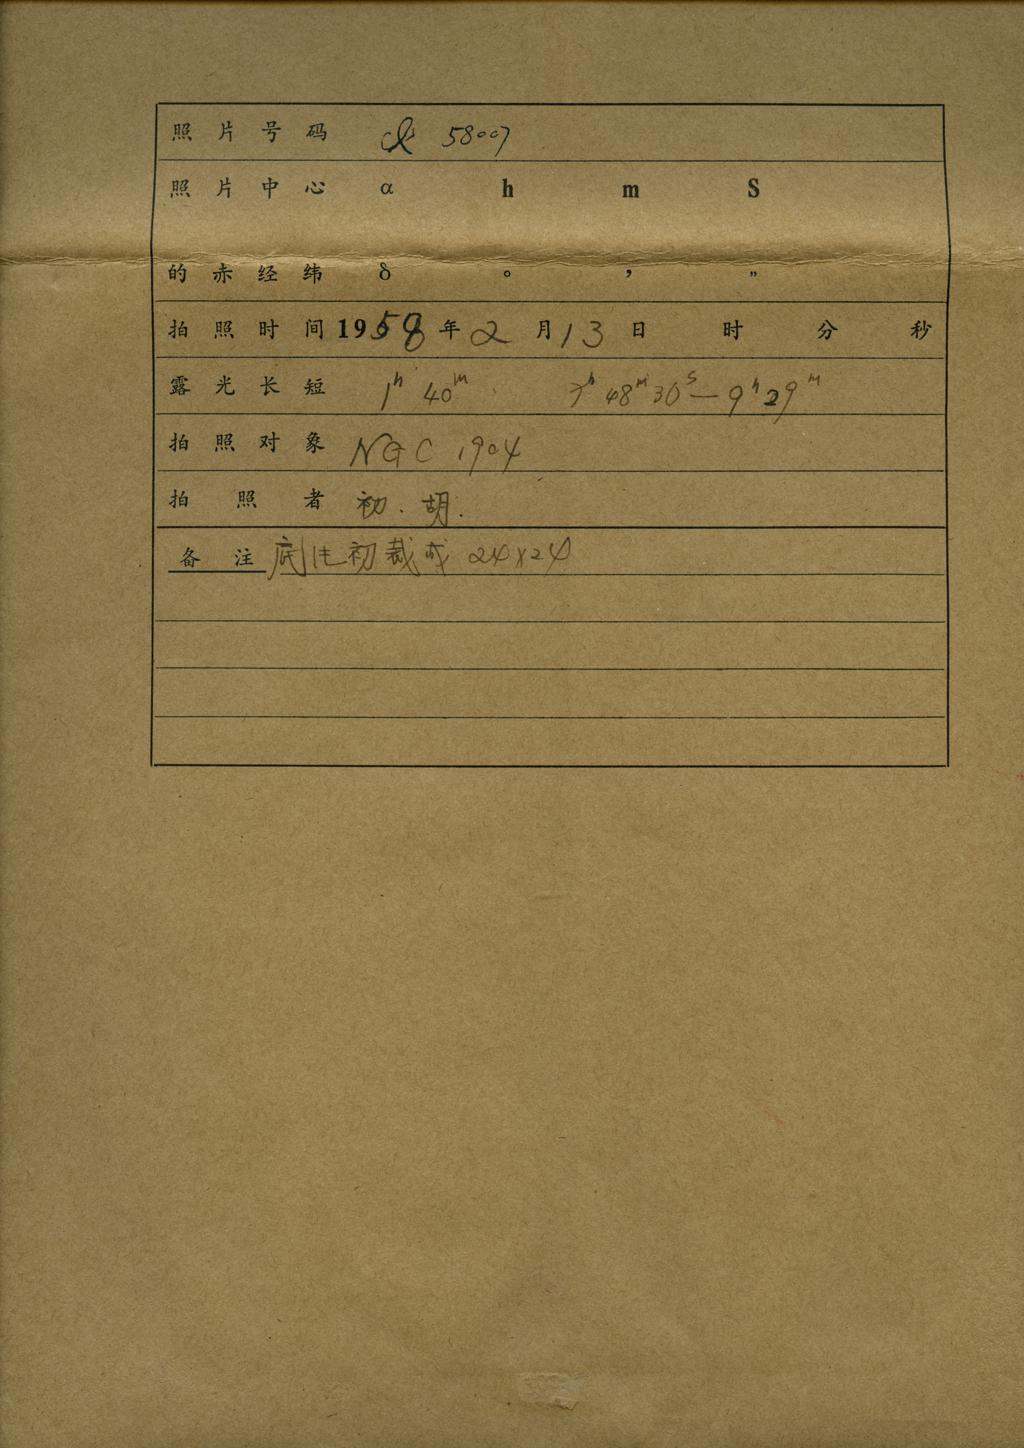 照片号码 58007
照片中心 α h m S
的赤经纬 δ ° ’ ”
拍照时间 1958年2月13日 时 分 秒
露光长短 1h 40m 7h 48m 30s — 9h 29m
拍照对象 NGC 1904
拍照者 初.胡.
备注 底片初裁成 24×24